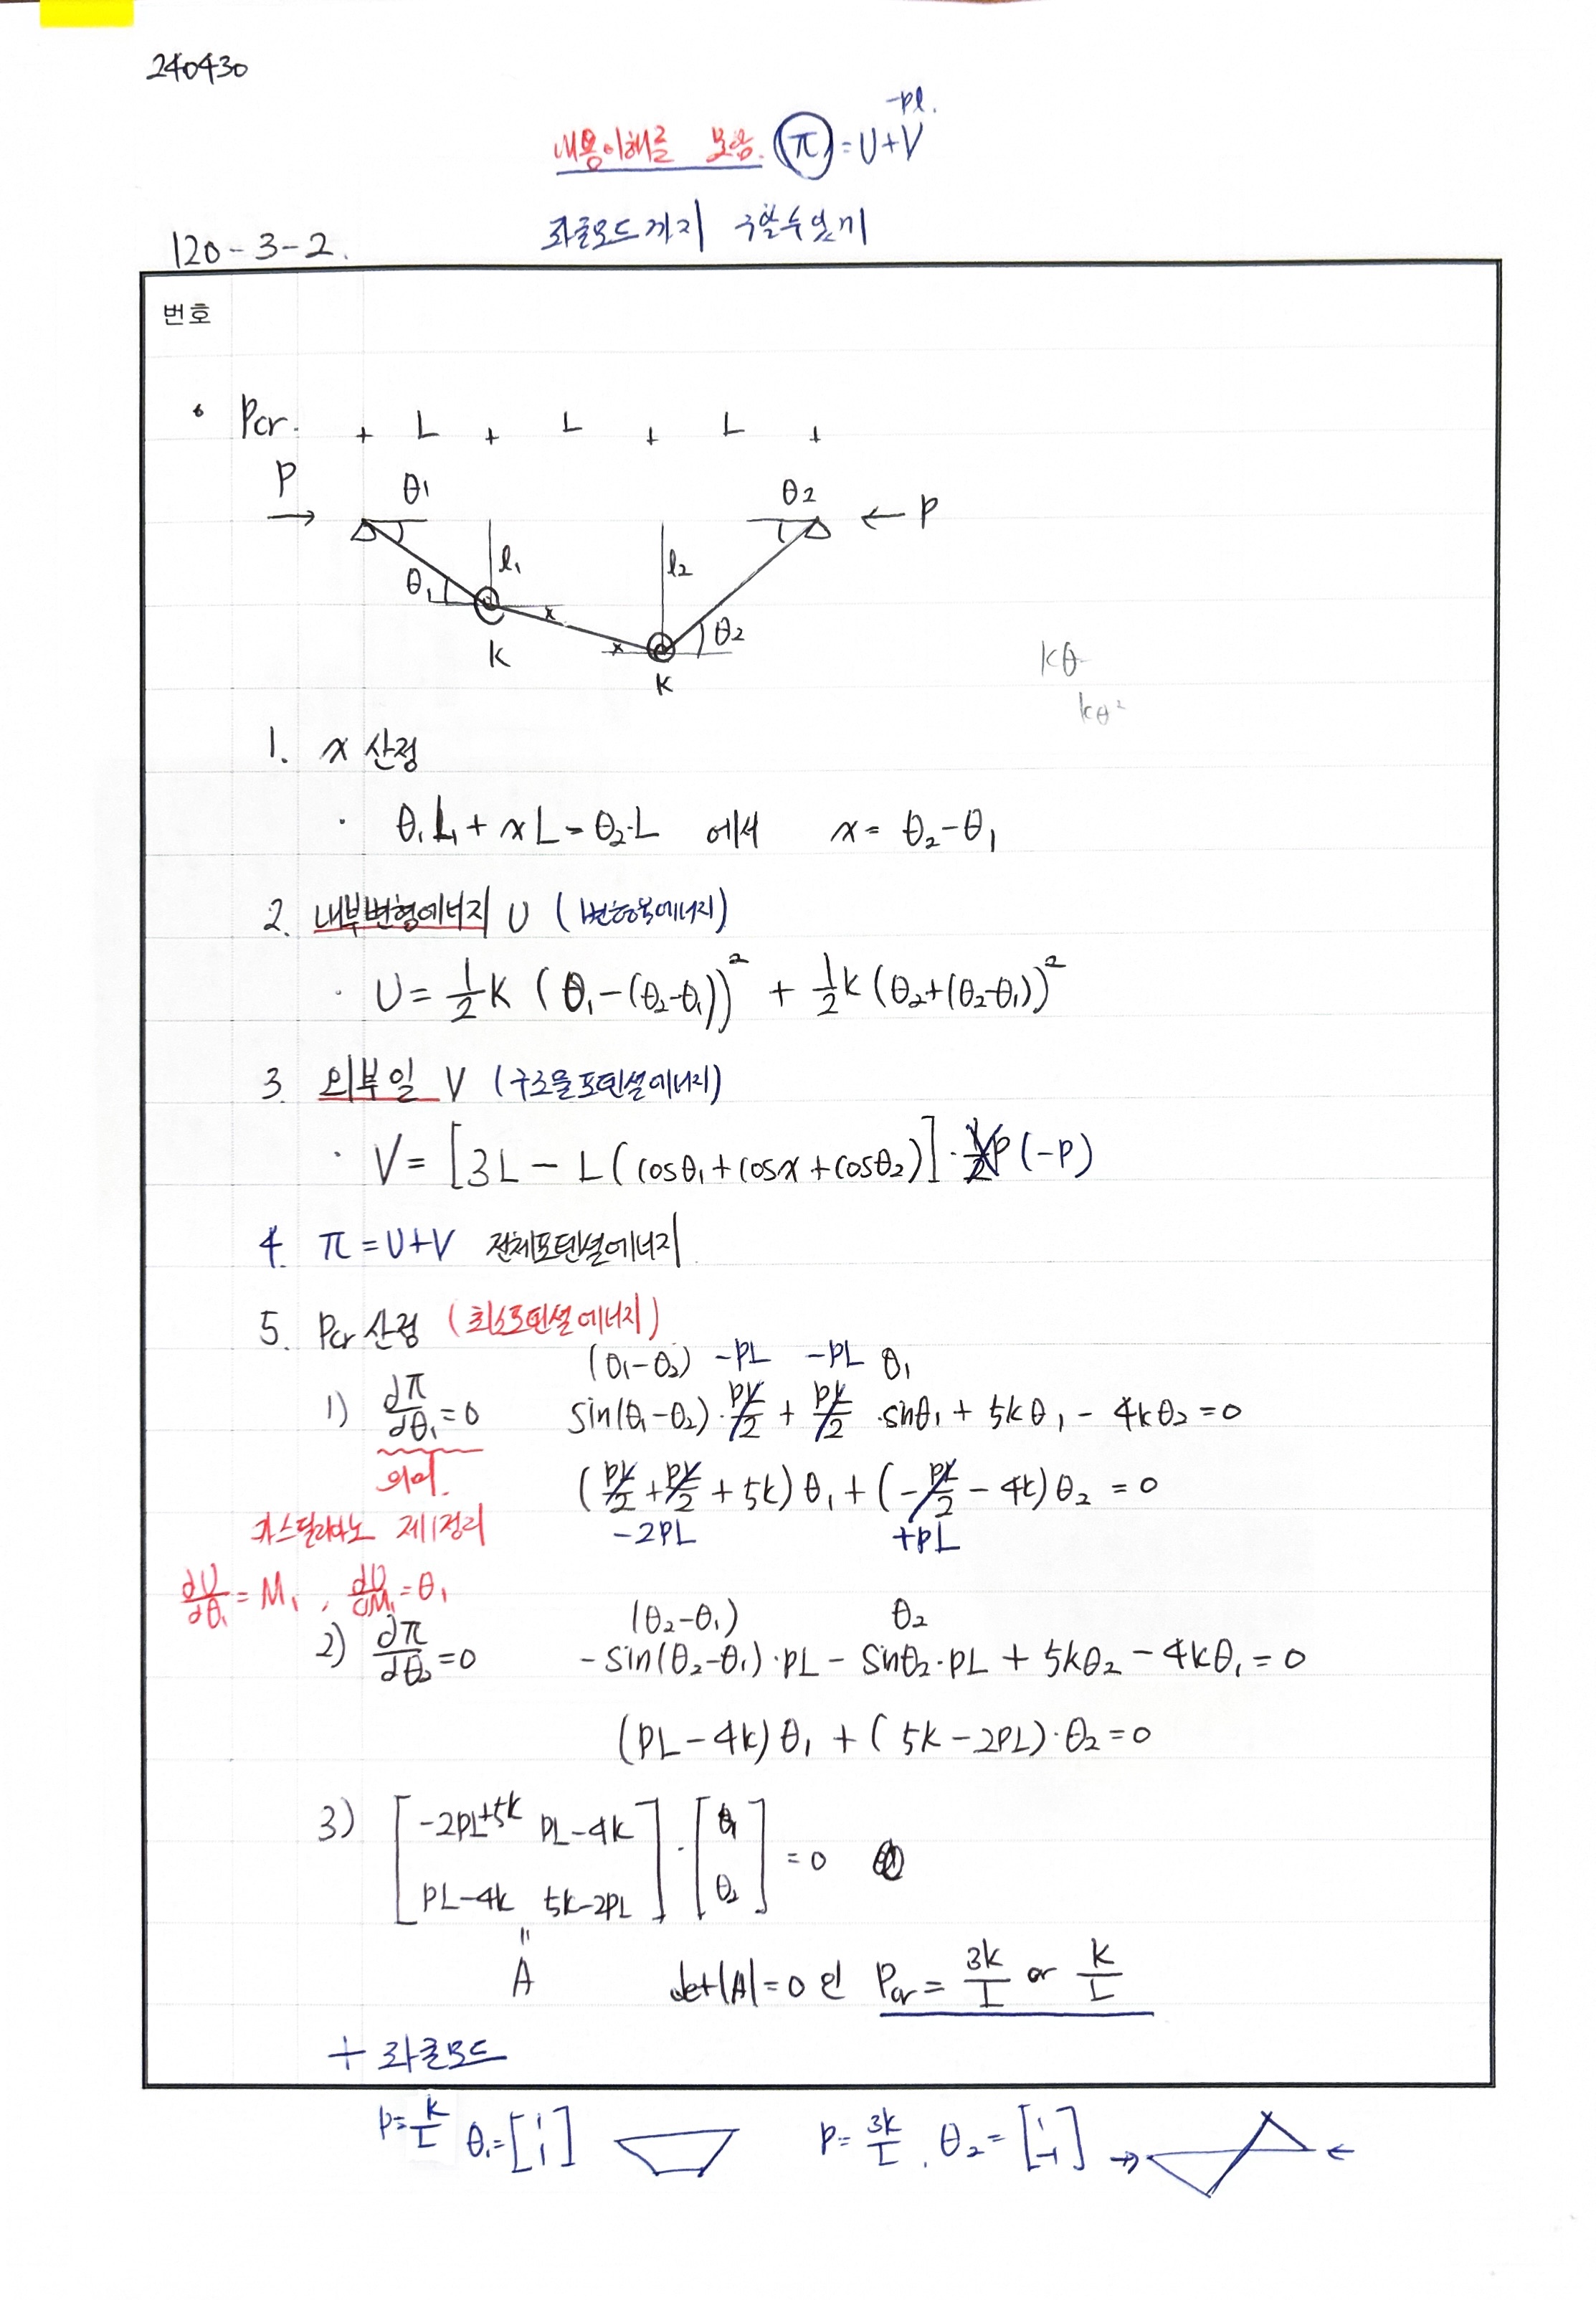 240430
-pl.
내용이해를 못함. π = U+V
좌굴모드까지 구할수있기
120-3-2.
번호
• Pcr. + L + L + L +
P θ1 θ2 P
l1 l2
θ1 x x θ2
k k
kθ
kθ²
1. x 산정
· θ1L + xL = θ2·L 에서 x = θ2-θ1
2. 내부변형에너지 U (변형에너지)
· U = 1/2 k (θ1-(θ2-θ1))² + 1/2 k (θ2+(θ2-θ1))²
3. 외부일 V (구조물포텐셜에너지)
· V = [3L - L(cosθ1+cosx+cosθ2)]· 1/2 P (-P)
4. π = U+V 전체포텐셜에너지
5. Pcr 산정 (최소포텐셜에너지)
(θ1-θ2) -PL -PL θ1
1) ∂π/∂θ1 = 0 sin(θ1-θ2)· PL/2 + PL/2 ·sinθ1 + 5kθ1 - 4kθ2 = 0
의미.
(PL/2 + PL/2 + 5k)θ1 + (-PL/2 - 4k)θ2 = 0
카스틸리아노 제1정리 -2PL +PL
∂U/∂θ1 = M1, ∂U/∂M1 = θ1
(θ2-θ1) θ2
2) ∂π/∂θ2 = 0 -sin(θ2-θ1)·PL - sinθ2·PL + 5kθ2 - 4kθ1 = 0
(PL-4k)θ1 + (5k-2PL)·θ2 = 0
3) [-2PL+5k PL-4k] · [θ1] = 0
[PL-4k 5k-2PL] [θ2]
= A det|A| = 0 인 Pcr = 3k/L or k/L
+ 좌굴모드
P = k/L θ1 = [1 1] P = 3k/L, θ2 = [1 -1]